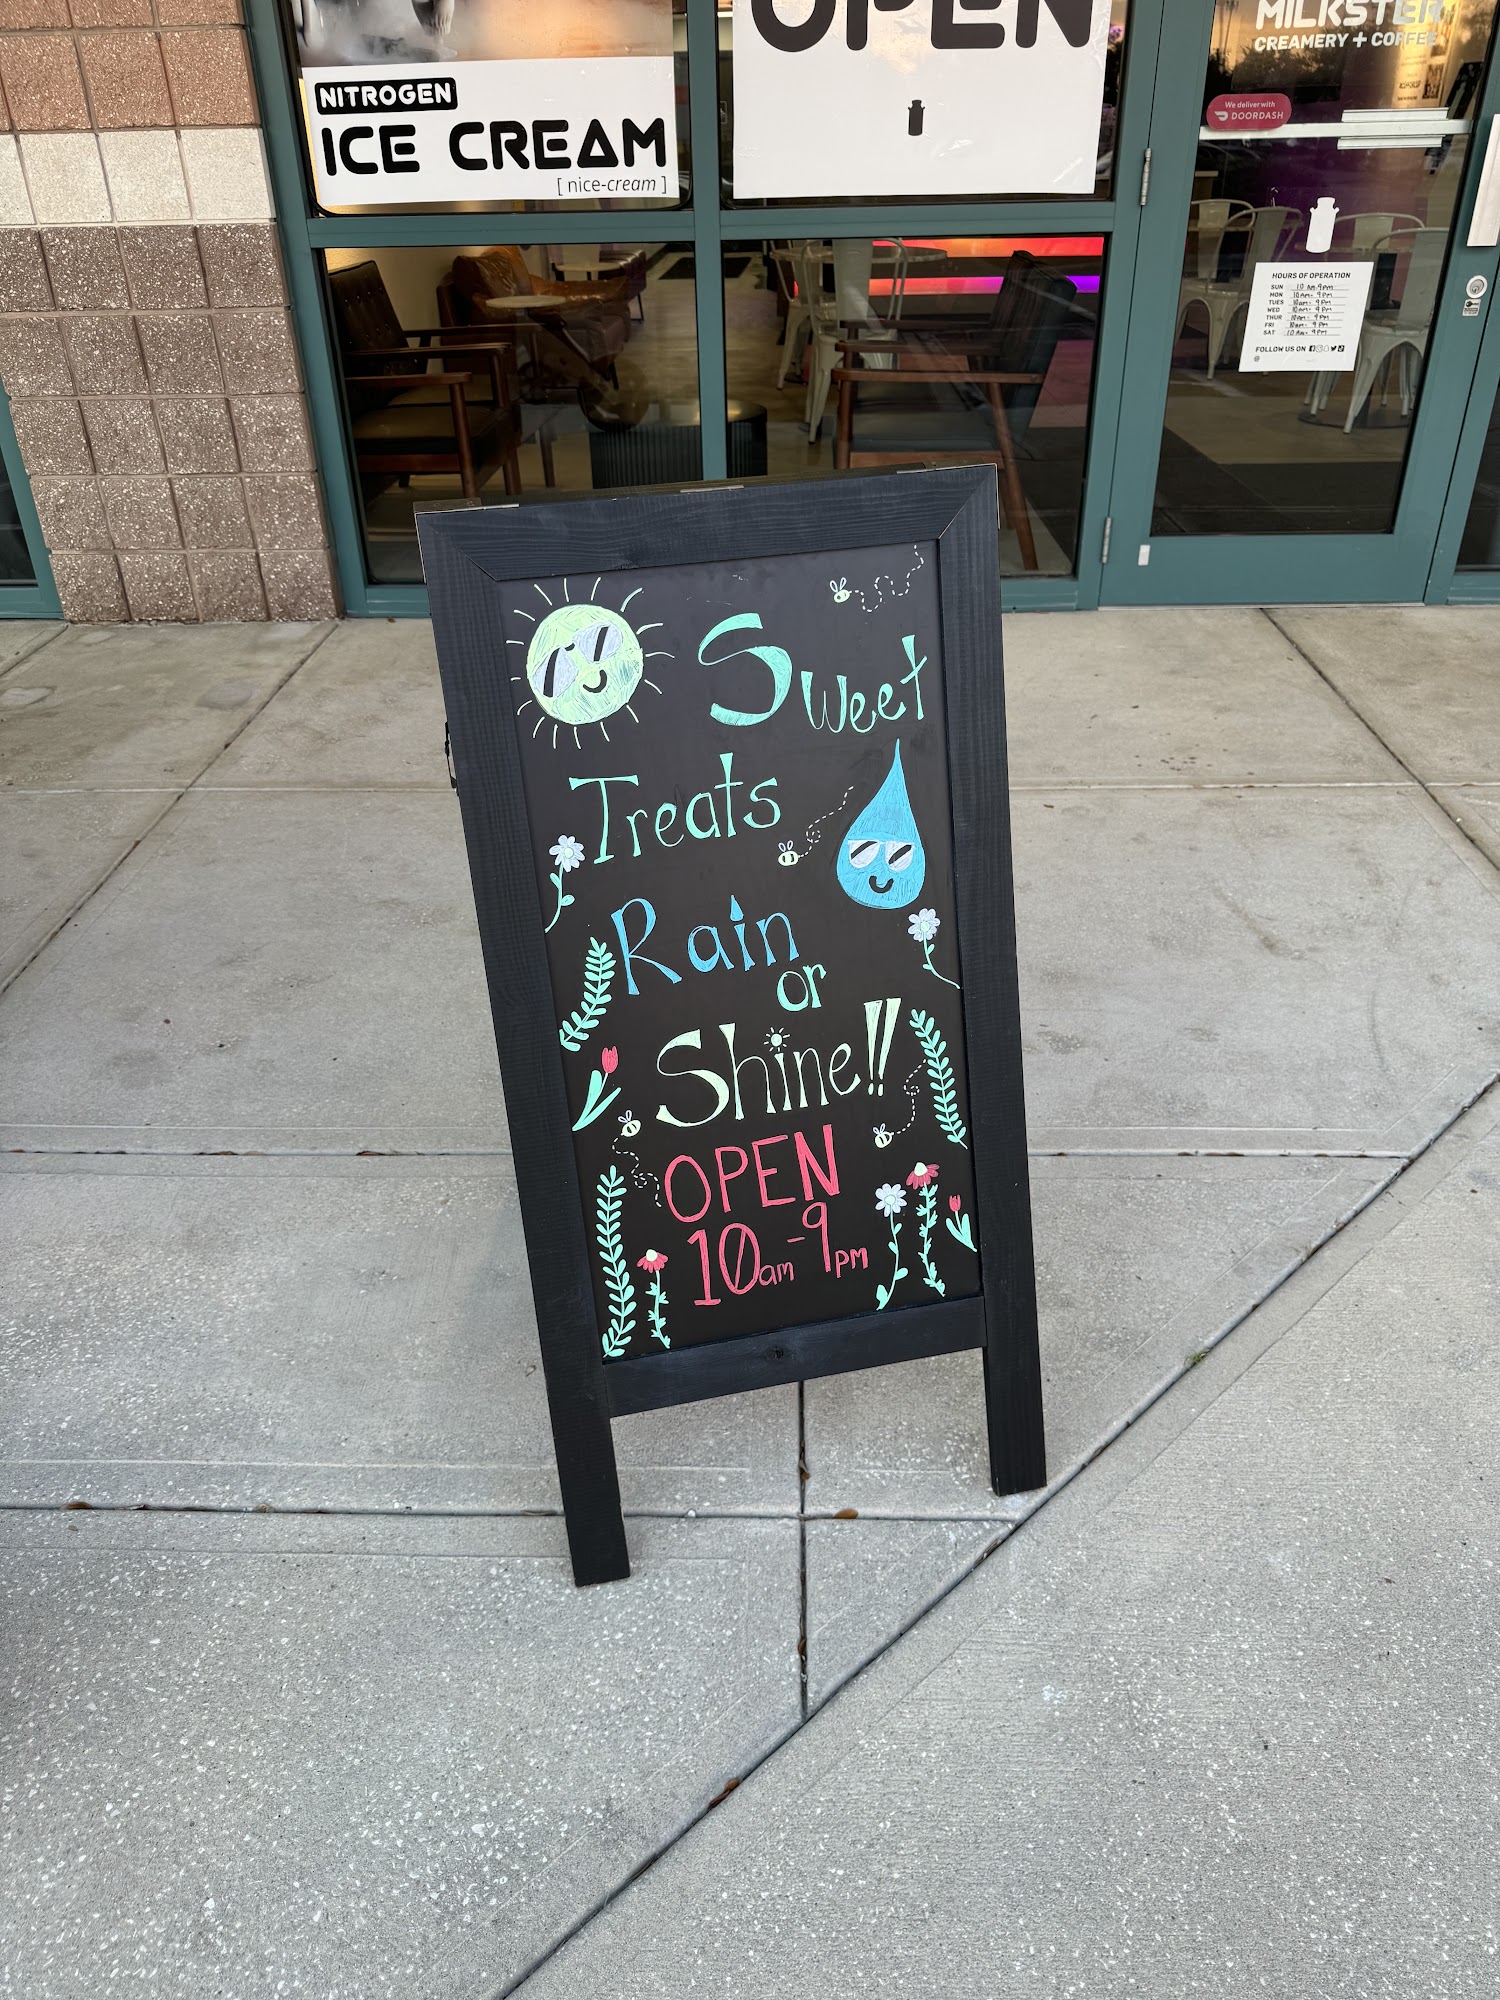 NITROGEN
ICE CREAM
[ nice-cream ]
OPEN
MILKSTER
CREAMERY + COFFEE
We deliver with
DOORDASH
HOURS OF OPERATION
SUN 10 am-9pm
MON 10am-9pm
TUES 10am-9pm
WED 10am-9pm
THUR 10am-9pm
FRI 10am-9pm
SAT 10am-9pm
FOLLOW US ON
Sweet
Treats
Rain
or
Shine!!
OPEN
10am-9pm